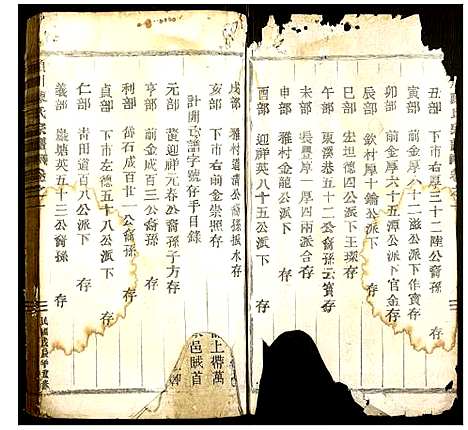 丑部 下市右厚三十二陸公裔孫 存
寅部 前金厚八十二滋公派下作賓存
卯部 前金厚六十五潭公派下官金存
辰部 欽村厚十鏞公派下 存
巳部 宏坦德四公派下王琛 存
午部 東溪惠五十二公裔孫云賓存
未部 長豐厚一四兩派合 存
申部 雅村金龍公派下 存
酉部 迎祥英八十五公派下 存
戌部 雅村道清公裔孫振水存
亥部 下市右前金崇照存
計開亨譜字號存手目錄
元部 黃迎祥元春公裔孫子方存
亨部 前金成百三公裔孫 存
利部 岱石成百廿一公裔孫 存
貞部 下市左德五十八公派下 存
仁部 青田道百八公派下 存
義部 嚴塘英五十三公裔孫 存
陳氏宗譜 卷之
上帶萬
邑賊首